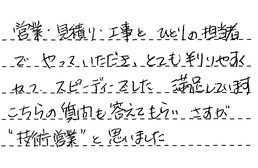 営業・見積り・工事と ひとりの担当者
で やっていただき、とても判りやすく
ねって スピーディでした 満足しています
こちらの質問も答えてもらい さすが
"技術営業"と思いました